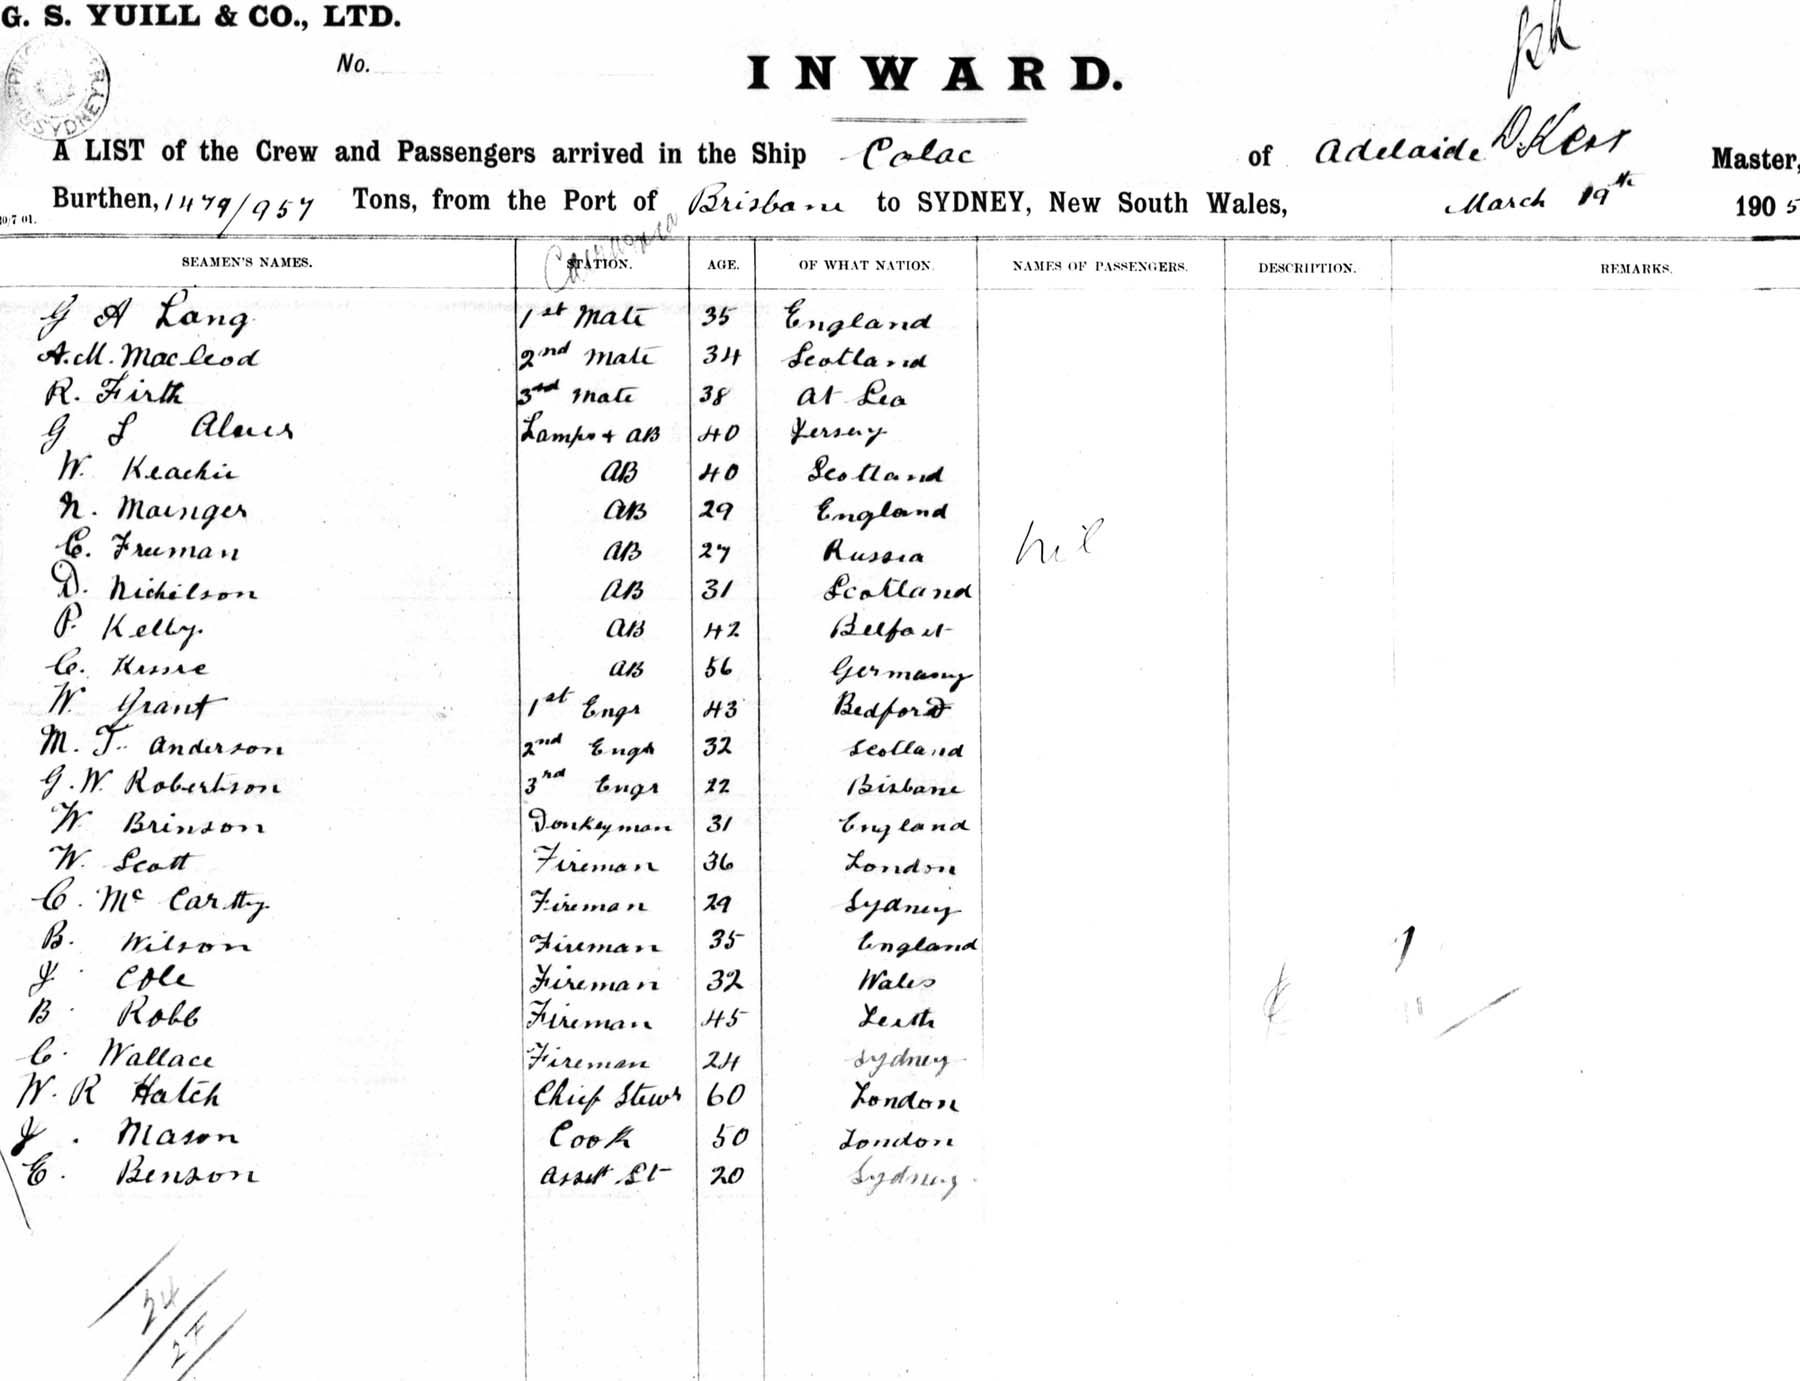 G. S. YUILL & CO., LTD.
SYDNEY
No.
INWARD.
A LIST of the Crew and Passengers arrived in the Ship Colac of Adelaide D. Kerr Master,
Burthen, 1479/957 Tons, from the Port of Brisbane to SYDNEY, New South Wales, March 19th 1905
30/7 01.
SEAMEN'S NAMES. STATION. AGE. OF WHAT NATION. NAMES OF PASSENGERS. DESCRIPTION. REMARKS.
G A Lang 1st Mate 35 England
A. M. Macleod 2nd Mate 34 Scotland
R. Firth 3rd Mate 38 At Sea
G S Lamps + AB 40 Jersey
W. Keachie AB 40 Scotland
N. Mainger AB 29 England
C. Freeman AB 27 Russia nil
D. Nichilson AB 31 Scotland
P. Kelly. AB 42 Belfast
C. AB 56 Germany
W. Grant 1st Engr 43 Bedford
M. T. Anderson 2nd Engr 32 Scotland
G. W. Robertson 3rd Engr 22 Bisbane
W Brinson Donkeyman 31 England
W. Scott Fireman 36 London
C. Mc Cartty Fireman 29 Sydney
B. Wilson Fireman 35 England
J. Cole Fireman 32 Wales
B. Robb Fireman 45 Leith
C. Wallace Fireman 24 Sydney
W. R Hatch Chief Stewr 60 London
J. Mason Cook 50 London
E. Benson Asst St 20 Sydney
24
24